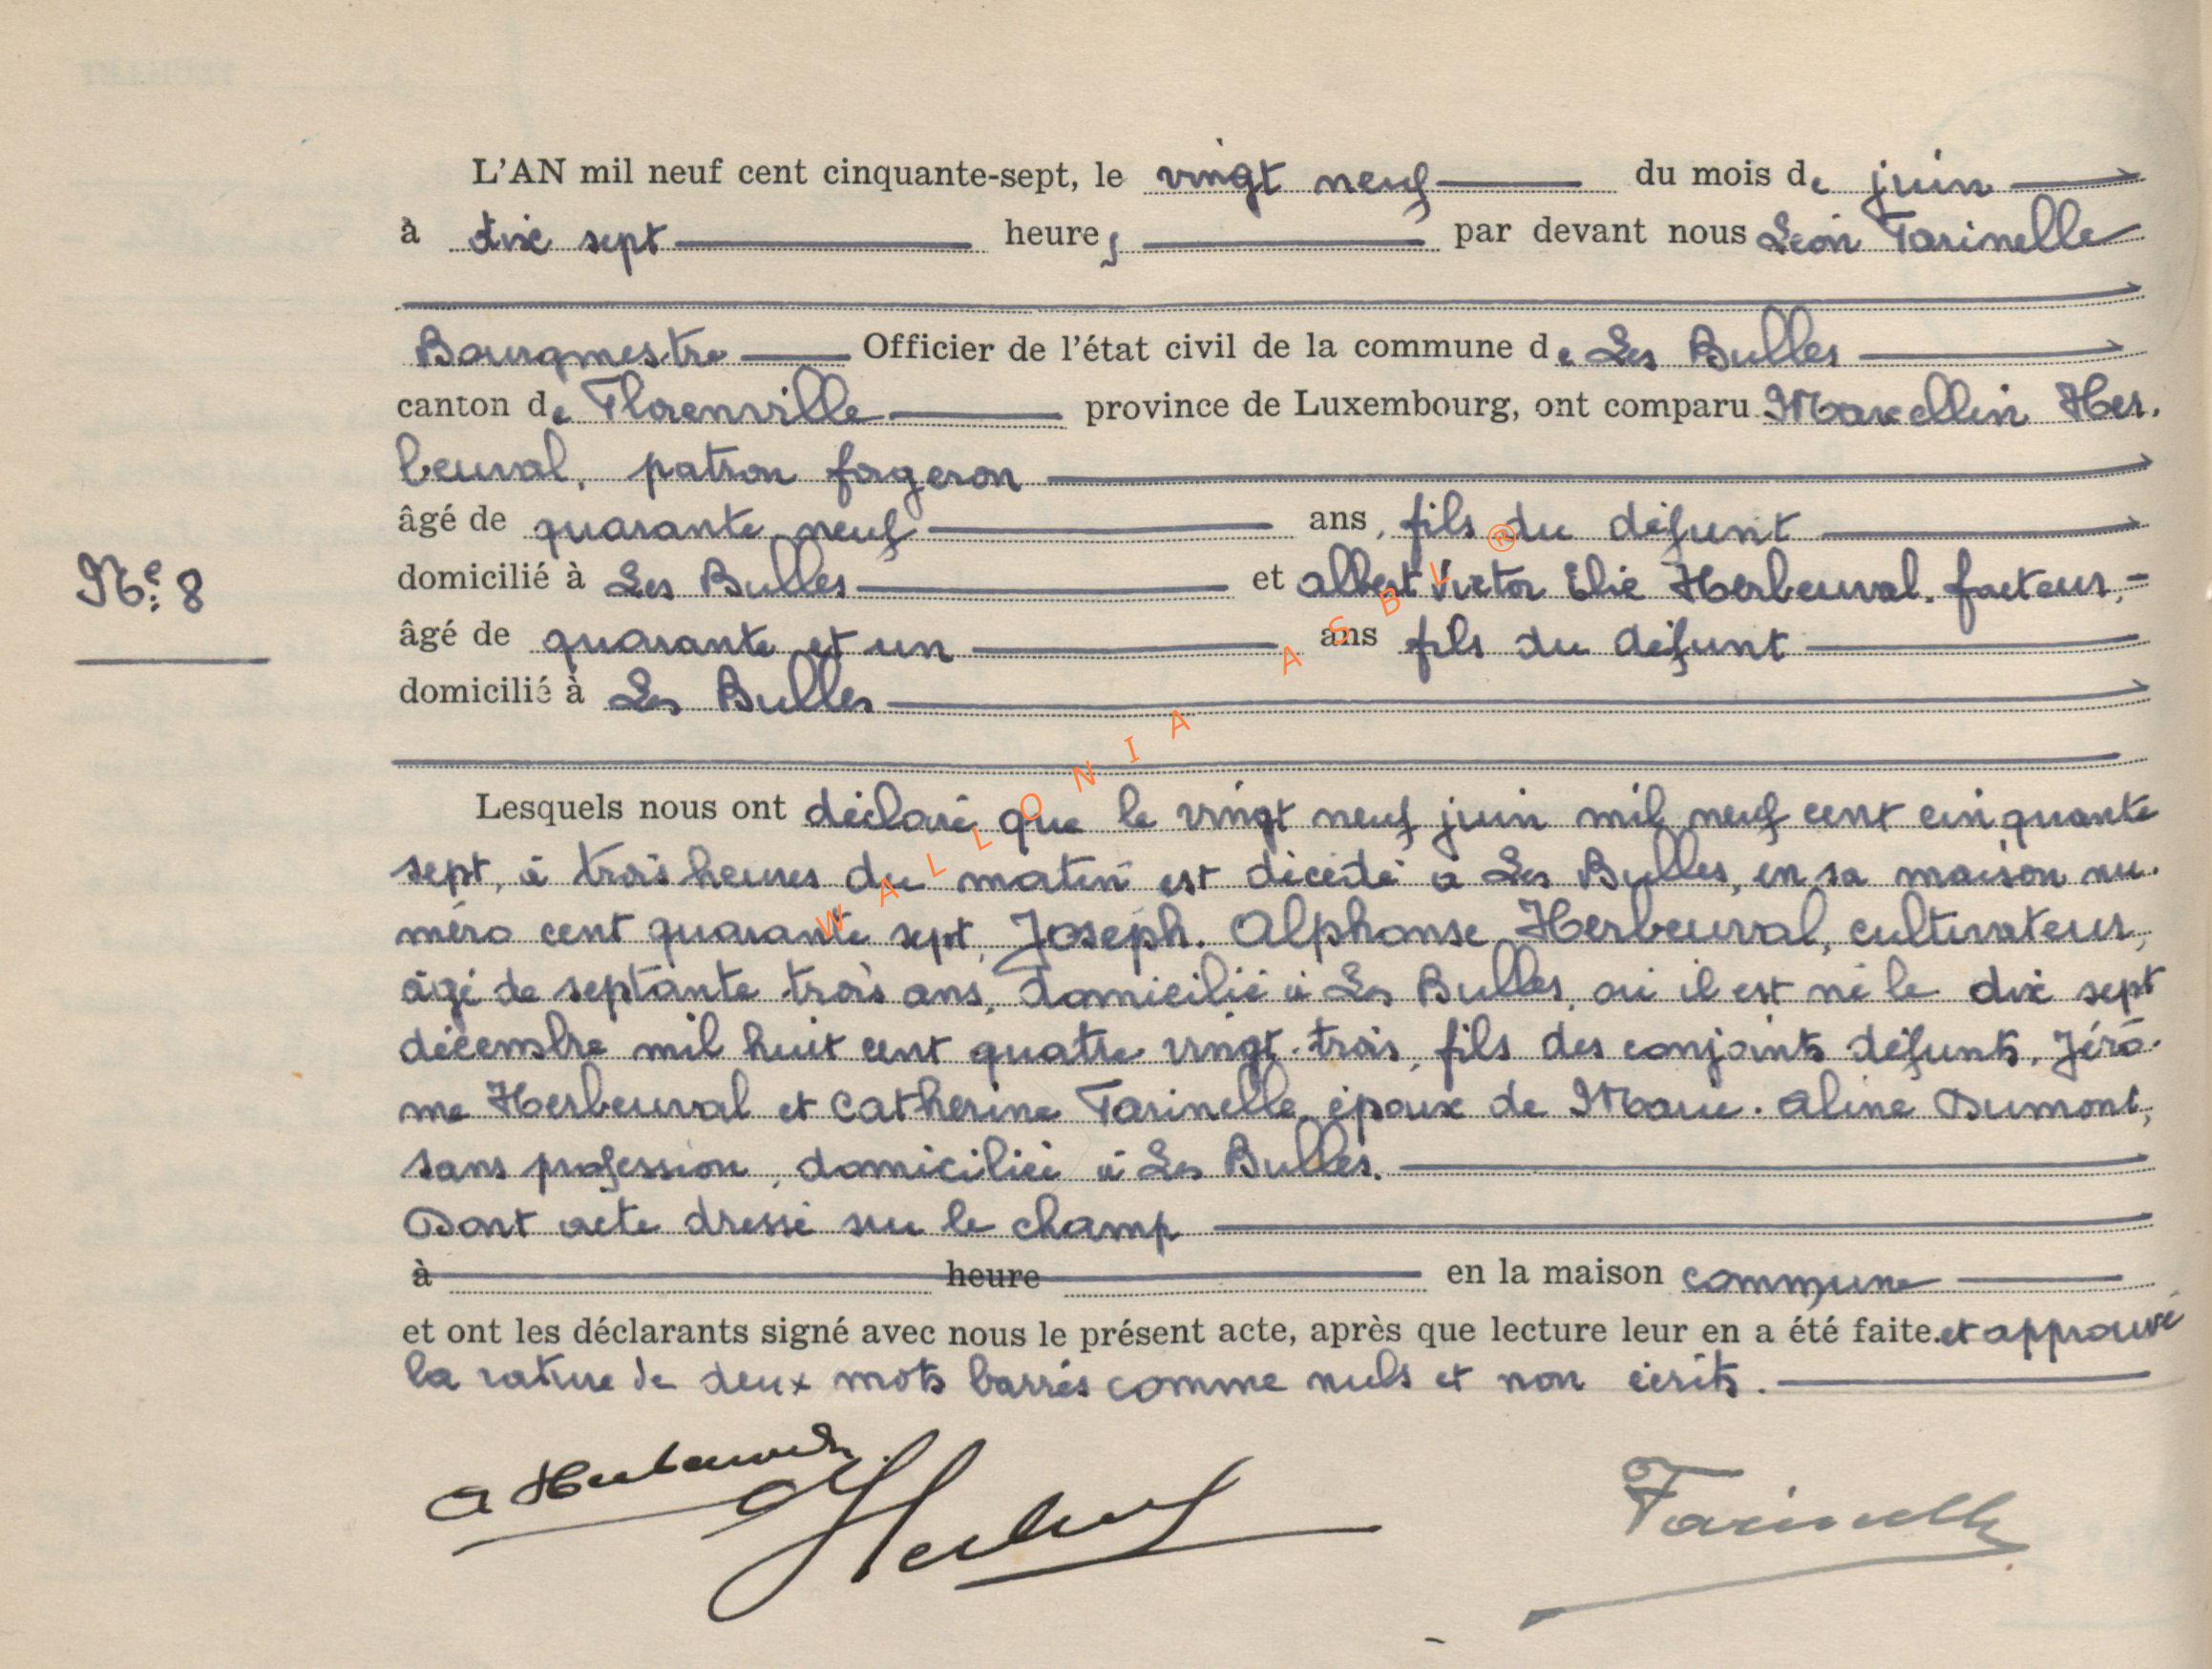 L'AN mil neuf cent cinquante-sept, le vingt neuf du mois de juin
à dix sept heures par devant nous Léon Farinelle
Bourgmestre Officier de l'état civil de la commune de Les Bulles
canton de Florenville province de Luxembourg, ont comparu Marcellin Her-
beuval, patron forgeron
âgé de quarante neuf ans, fils du défunt
N° 8
domicilié à Les Bulles et Albert Victor Elie Herbeuval, facteur,
âgé de quarante et un ans fils du défunt
domicilié à Les Bulles
Lesquels nous ont déclaré que le vingt neuf juin mil neuf cent cinquante
sept, à trois heures du matin est décédé à Les Bulles, en sa maison nu-
méro cent quarante sept, Joseph-Alphonse Herbeuval, cultivateur,
âgé de septante trois ans, domicilié à Les Bulles, où il est né le dix sept
décembre mil huit cent quatre vingt-trois, fils des conjoints défunts, Jérô-
me Herbeuval et Catherine Farinelle, époux de Marie-Aline Dumont,
sans profession, domiciliée à Les Bulles.
Dont acte dressé sur le champ
à heure en la maison commune
et ont les déclarants signé avec nous le présent acte, après que lecture leur en a été faite. et approuvé
la rature de deux mots barrés comme nuls et non écrits.
A Herbeuval
Farinelle
WALLONIA ASBL ®